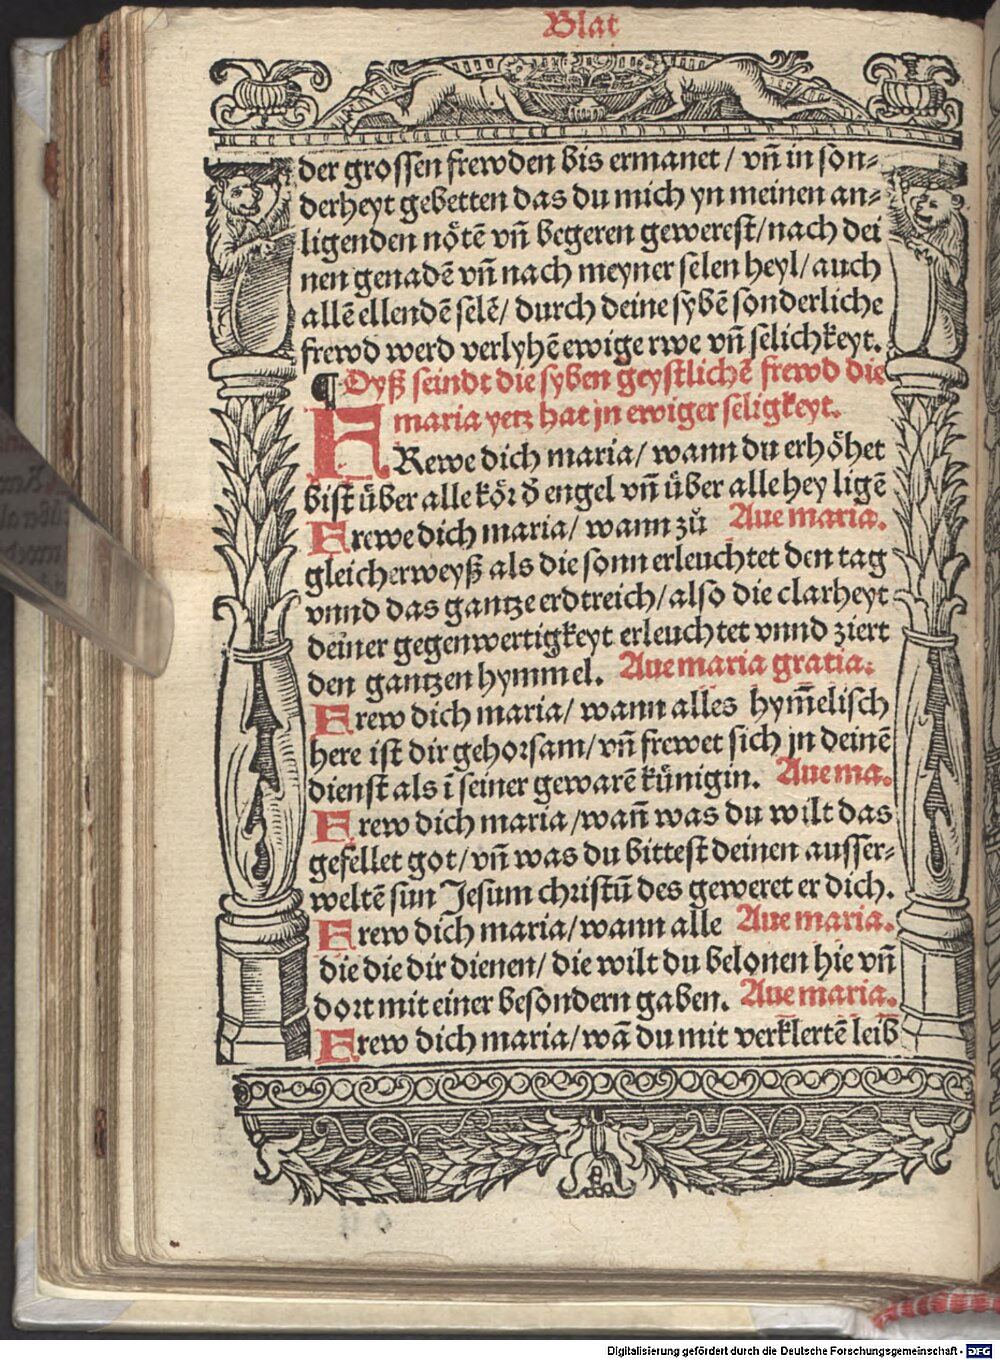 Blat
der grossen frewden bis ermanet / vñ in son⸗
derheyt gebetten das du mich yn meinen an⸗
ligenden nötē vñ begeren gewerest / nach dei
nen genadē vñ nach meyner selen heyl / auch
allē ellendē selē / durch deine sybē sonderliche
frewd werd verlyhē ewige rwe vñ selichkeyt.
¶ Dyß seindt die syben geystlichē frewd die
maria yetz hat jn ewiger seligkeyt.
FRewe dich maria / wann du erhöhet
bist über alle kör d̄ engel vñ über alle heyligē
Frewe dich maria / wann zů Aue maria.
gleicherweyß als die sonn erleuchtet den tag
vnnd das gantze erdtreich / also die clarheyt
deiner gegenwertigkeyt erleuchtet vnnd ziert
den gantzen hymmel. Aue maria gratia.
Frew dich maria / wann alles hym̄elisch
here ist dir gehorsam / vñ frewet sich jn deinē
dienst als ī seiner gewarē künigin. Aue ma.
Frew dich maria / wañ was du wilt das
gefellet got / vñ was du bittest deinen ausser⸗
weltē sun Jesum christū des geweret er dich.
Frew dich maria / wann alle Aue maria.
die die dir dienen / die wilt du belonen hie vñ
dort mit einer besondern gaben. Aue maria.
Frew dich maria / wā du mit verklertē leib
Digitalisierung gefördert durch die Deutsche Forschungsgemeinschaft - DFG